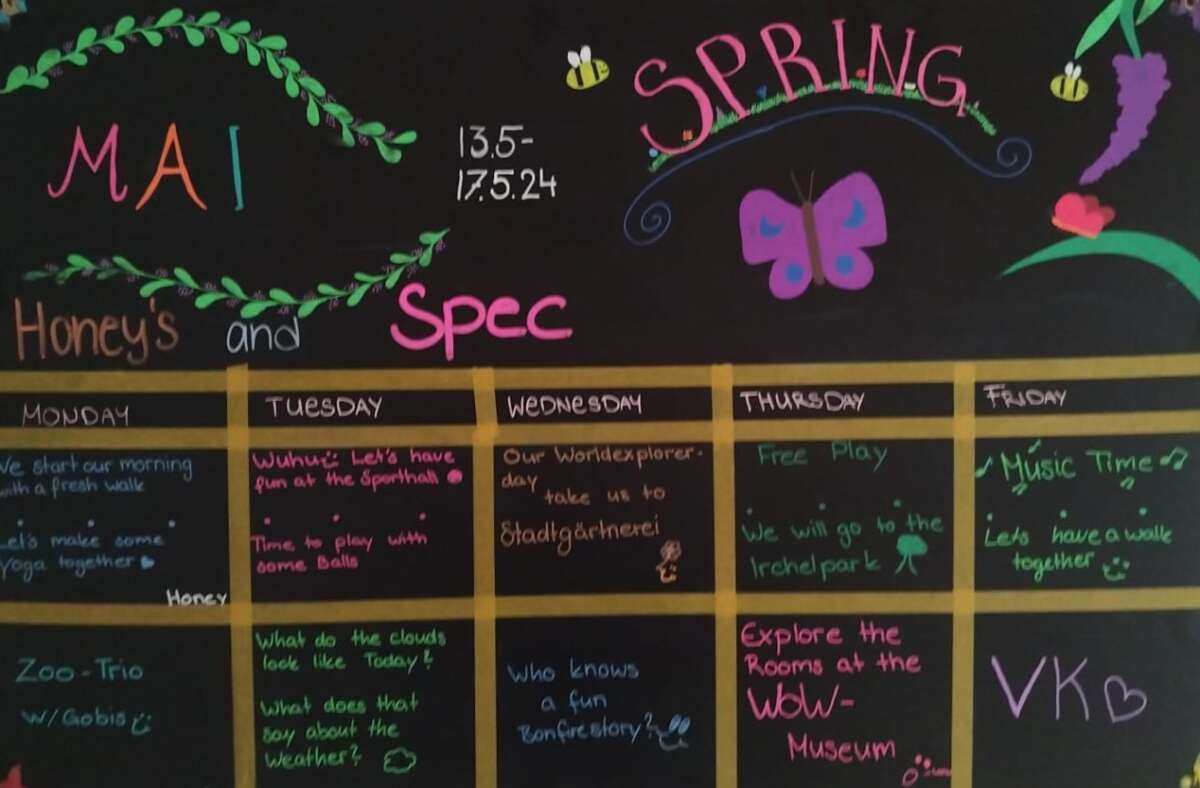 MAI
13.5-
17.5.24
SPRING
Honey's and Spec
MONDAY
TUESDAY
WEDNESDAY
THURSDAY
FRIDAY
We start our morning
with a fresh walk
Let's make some
Yoga together
Honey
Wuhu Let's have
fun at the Sporthall
Time to play with
some Balls
Our Worldexplorer-
day
take us to
Stadtgärtnerei
Free Play
We will go to the
Irchelpark
Music Time
Lets have a walk
together
Zoo-Trio
w/Gobis
What do the clouds
look like Today?
What does that
say about the
Weather?
Who knows
a fun
Bonfirestory?
Explore the
Rooms at the
WOW-
Museum
VK